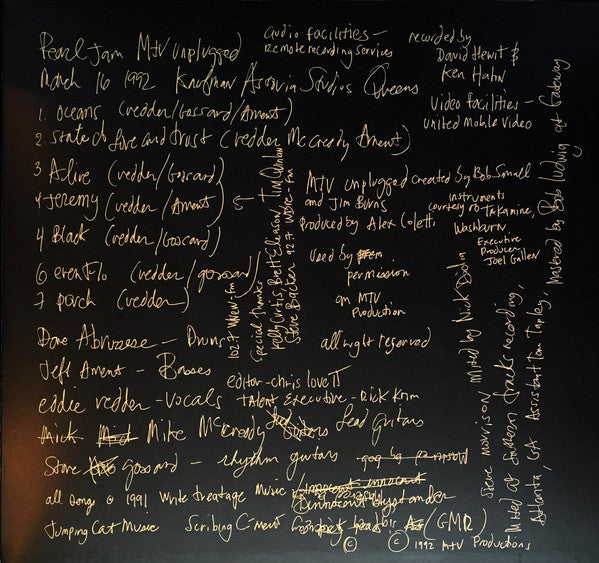 Pearl Jam MTV unplugged
March 16 1992 Kaufman Astoria Studios Queens
1. oceans (vedder/Gossard/Ament)
2. state of love and trust (vedder McCready Ament)
3 Alive (vedder/Gossard)
4 Jeremy (vedder/Ament) 5
4 Black (vedder/Gossard)
6 evenflo (vedder/gossard)
7 porch (vedder)
Dave Abruzzese - Drums
Jeff Ament - Basses
eddie vedder - vocals
Mick Mike McCready Lead guitars
Stone gossard - rhythm guitars
all songs © 1991 write treatage Music innocent bystander
Jumping Cat Music Scribing C-ment (GMR)
© © 1992 MTV Productions
audio facilities -
remote recording services
recorded by
David Hewit &
Ken Hahn
Video facilities -
united Mobile Video
MTV unplugged created by Bob Small
and Jim Burns
Produced by Alex Coletti
instruments
courtesy of Takamine,
Washburn
Executive
Producer
Joel Gallen
used by
permission
on MTV
Production
all right reserved
editor - chris love II
talent Executive - Rick Krim
102.7 WNEW-FM
Special Thanks
Kelly Curtis, Brett Eliason, Tim
Steve Backer 92.7 WDRE-FM
Steve morrison mixed by Nick Didia
mixed at Southern Tracks recording,
Atlanta, GA Assistant Tom Tapley,
mastered by Bob Ludwig at Gateway